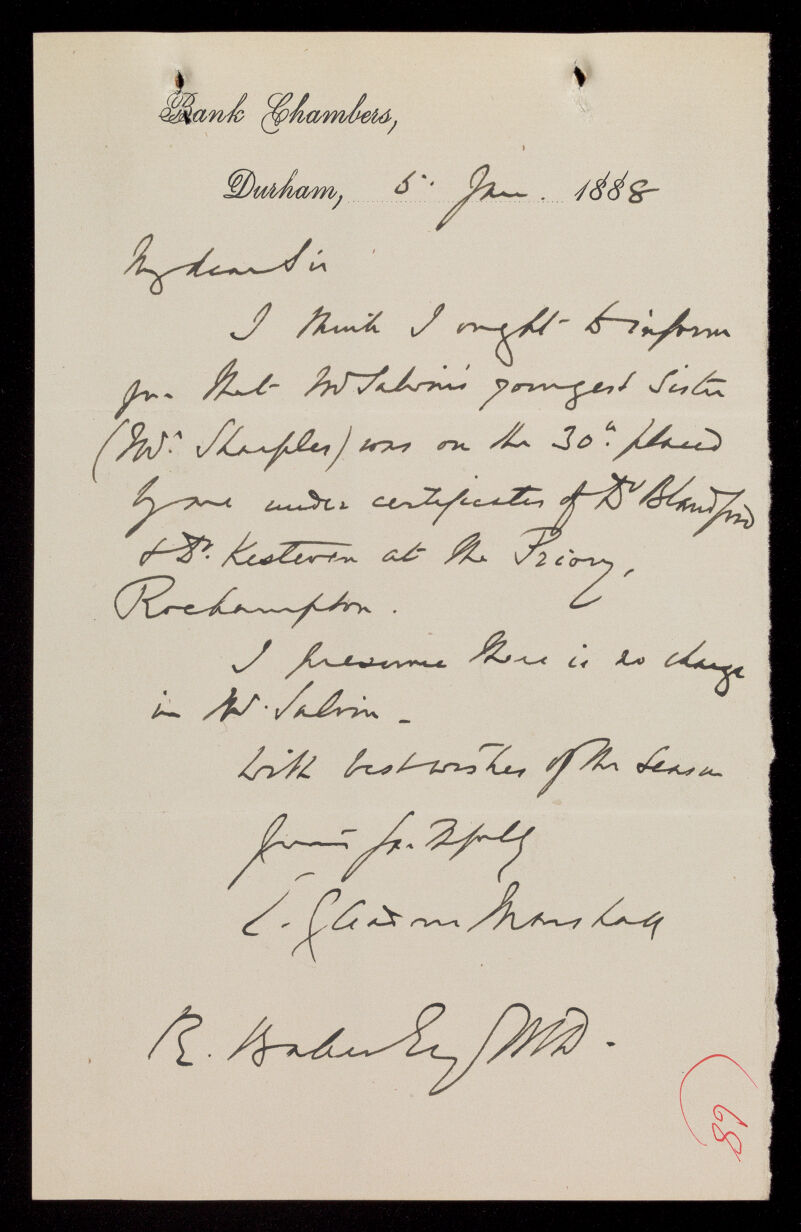 Bank Chambers,
Durham, 5. Jan. 1888
My dear Sir
I think I ought to inform
you that Mr Salvin's youngest sister
(Mrs. Sharples) was on the 30th. placed
by me under certificates of Dr Blandford
& Dr. Kesteven at the Priory,
Roehampton.
I presume there is no change
in Mr. Salvin -
With best wishes of the season
Yours faithfully
Marshall
R. Baker Esq MD.
68